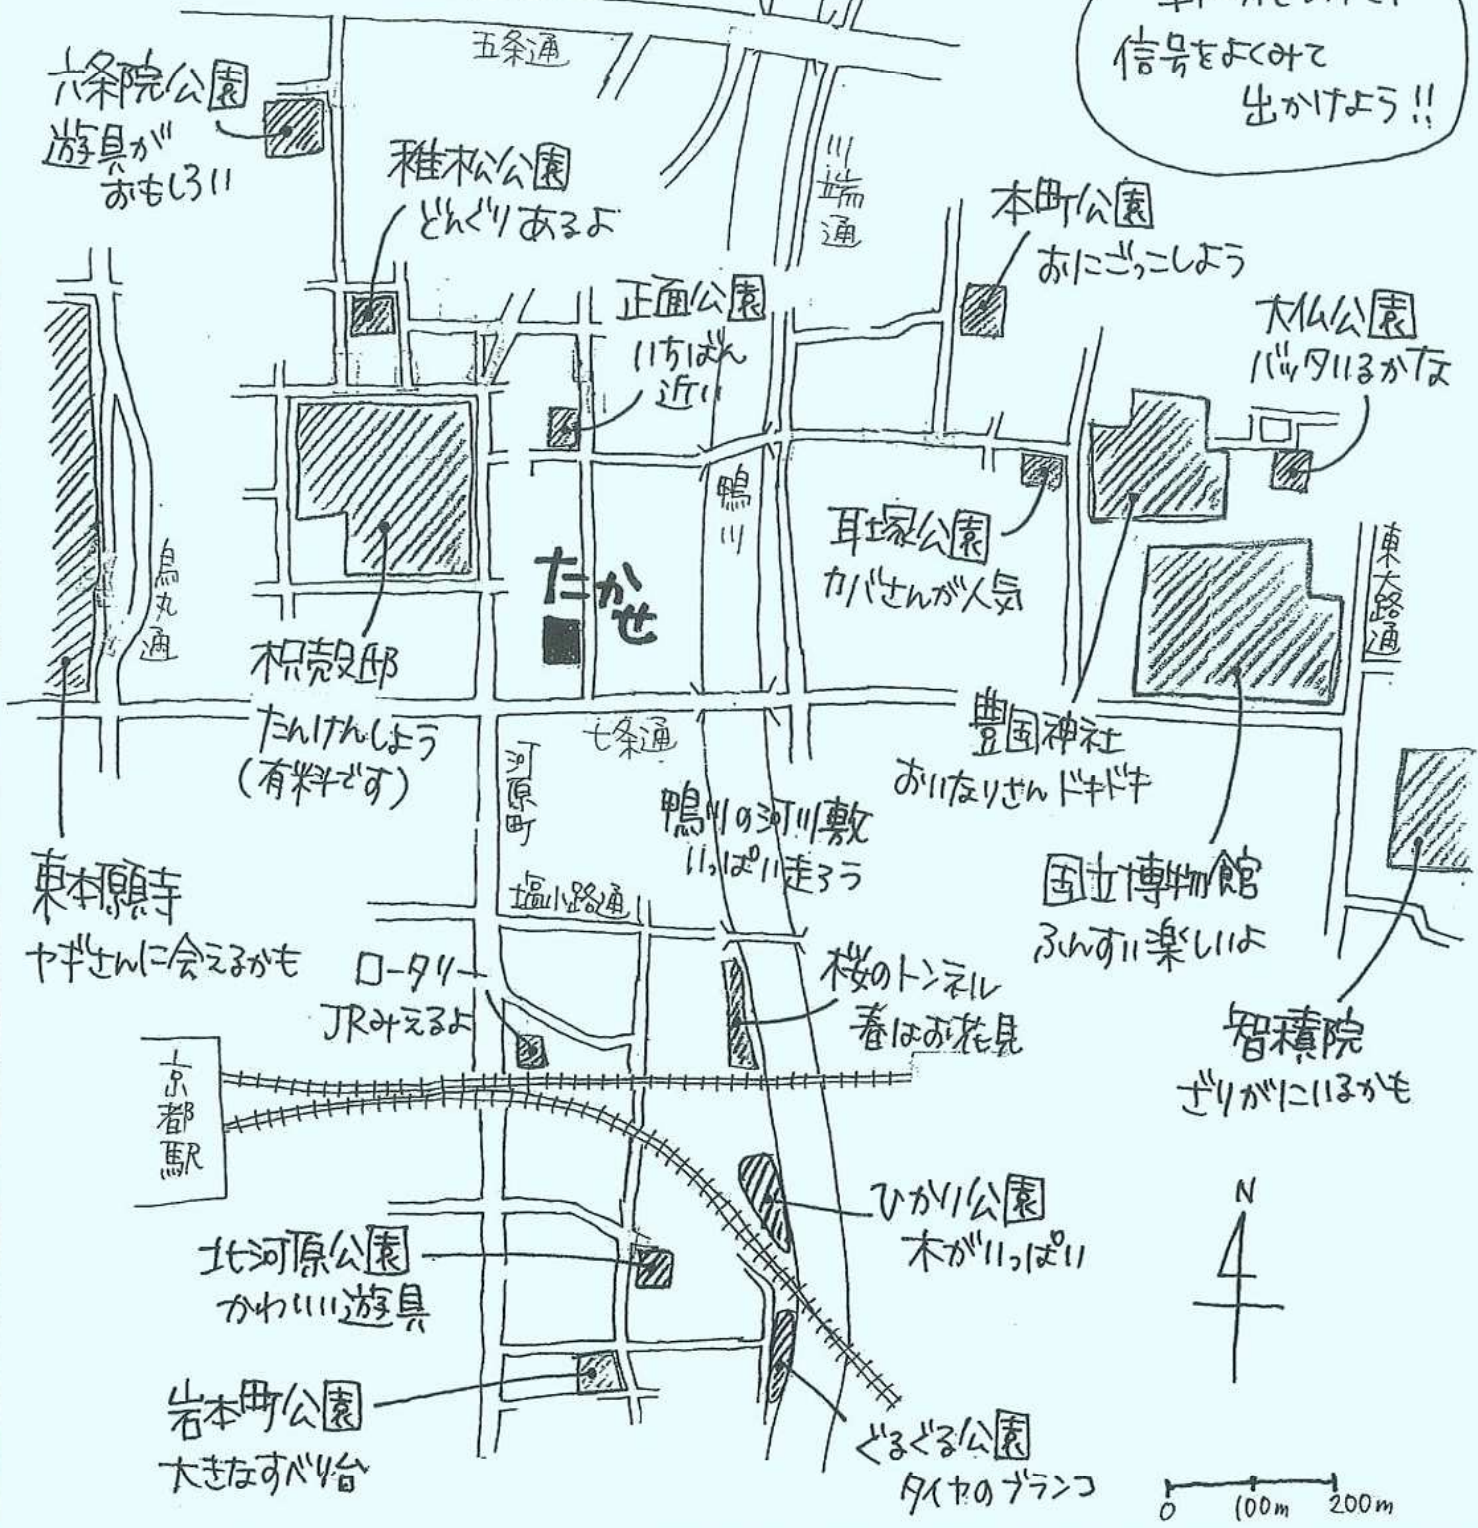 信号をよくみて
出かけよう!!
五条通
六条院公園
遊具が
おもしろい
稚松公園
どんぐりあるよ
川端通
本町公園
おにごっこしよう
正面公園
いちばん
近い
大仏公園
バッタいるかな
鴨川
耳塚公園
カバさんが人気
東大路通
烏丸通
たかせ
枳殻邸
たんけんしよう
(有料です)
七条通
河原町
豊国神社
おいなりさんドキドキ
鴨川の河川敷
いっぱい走ろう
東本願寺
ヤギさんに会えるかも
塩小路通
国立博物館
ふんすい楽しいよ
ロータリー
JRみえるよ
桜のトンネル
春はお花見
智積院
ざりがにいるかも
京都駅
ひかり公園
木がいっぱい
N
北河原公園
かわいい遊具
岩本町公園
大きなすべり台
ぐるぐる公園
タイヤのブランコ
0 100m 200m